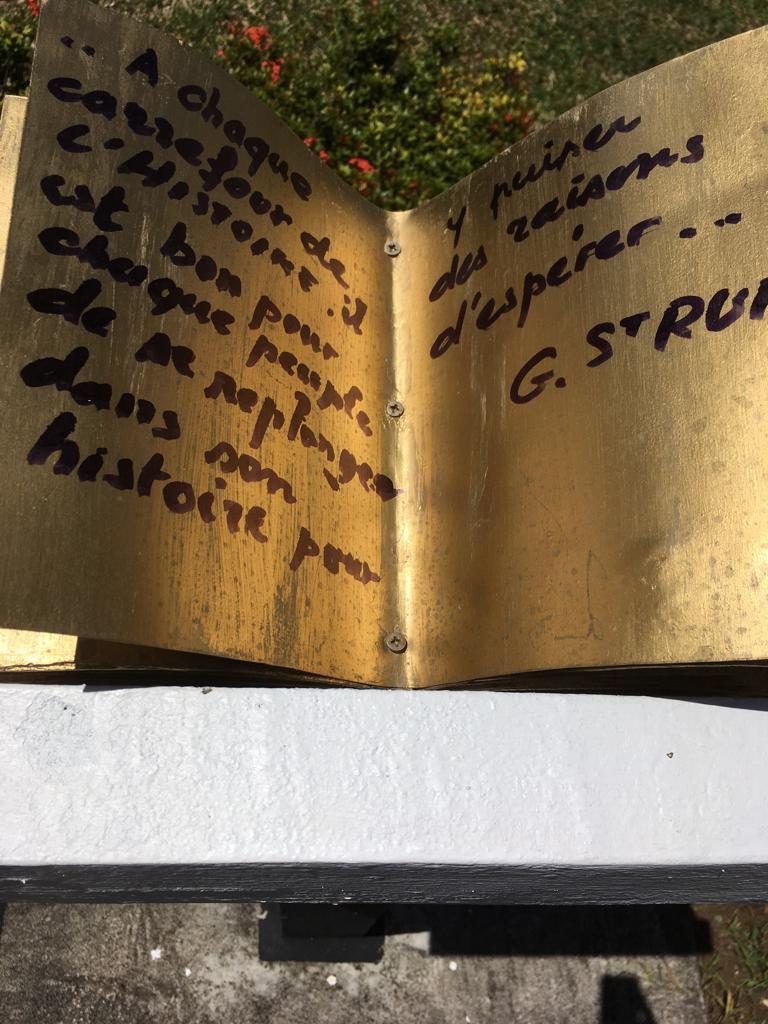 .. A chaque
carrefour de
L'HISTOIRE il
est bon pour
chaque peuple
de se replonger
dans son
histoire pour
y puiser
des raisons
d'espérer...
G. ST RUF